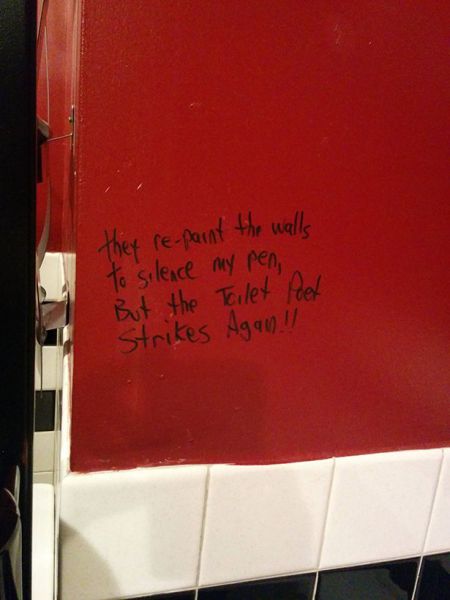 they re-paint the walls
to silence my pen,
But the Toilet Poet
Strikes Again!!